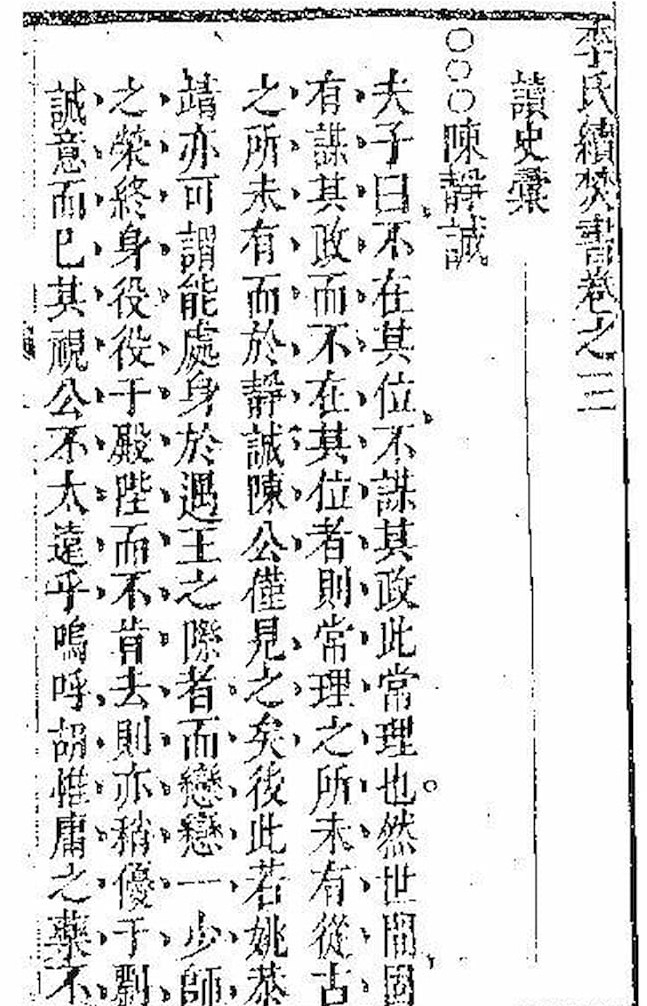 李氏續焚書卷之三
讀史彙
○○○陳靜誠
夫子曰不在其位不謀其政此常理也然世間固
有謀其政而不在其位者則常理之所未有從古
之所未有而於靜誠陳公僅見之矣後此若姚恭
靖亦可謂能處身於遇王之際者而戀戀一少師
之榮終身役役于殿陛而不肯去則亦稍優于劉
誠意而已其視公不太遠乎嗚呼胡惟庸之藥不